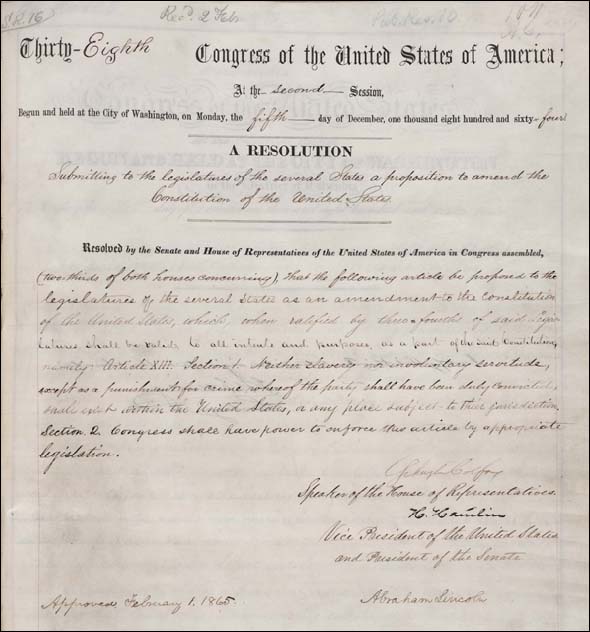 S.R. 16 Recd. 2 Feb Pub. Res. 10
Thirty-Eighth Congress of the United States of America;
At the second Session,
Begun and held at the City of Washington, on Monday, the fifth day of December, one thousand eight hundred and sixty-four
A RESOLUTION
Submitting to the legislatures of the several States a proposition to amend the
Constitution of the United States.
Resolved by the Senate and House of Representatives of the United States of America in Congress assembled,
(two-thirds of both houses concurring), that the following article be proposed to the
legislatures of the several States as an amendment to the Constitution
of the United States, which, when ratified by three-fourths of said Legis-
latures, shall be valid, to all intents and purposes, as a part of the said Constitution,
namely: Article XIII. Section 1. Neither slavery nor involuntary servitude,
except as a punishment for crime whereof the party shall have been duly convicted,
shall exist within the United States, or any place subject to their jurisdiction.
Section 2. Congress shall have power to enforce this article by appropriate
legislation.
Schuyler Colfax
Speaker of the House of Representatives.
H. Hamlin
Vice President of the United States
and President of the Senate
Approved, February 1. 1865.
Abraham Lincoln